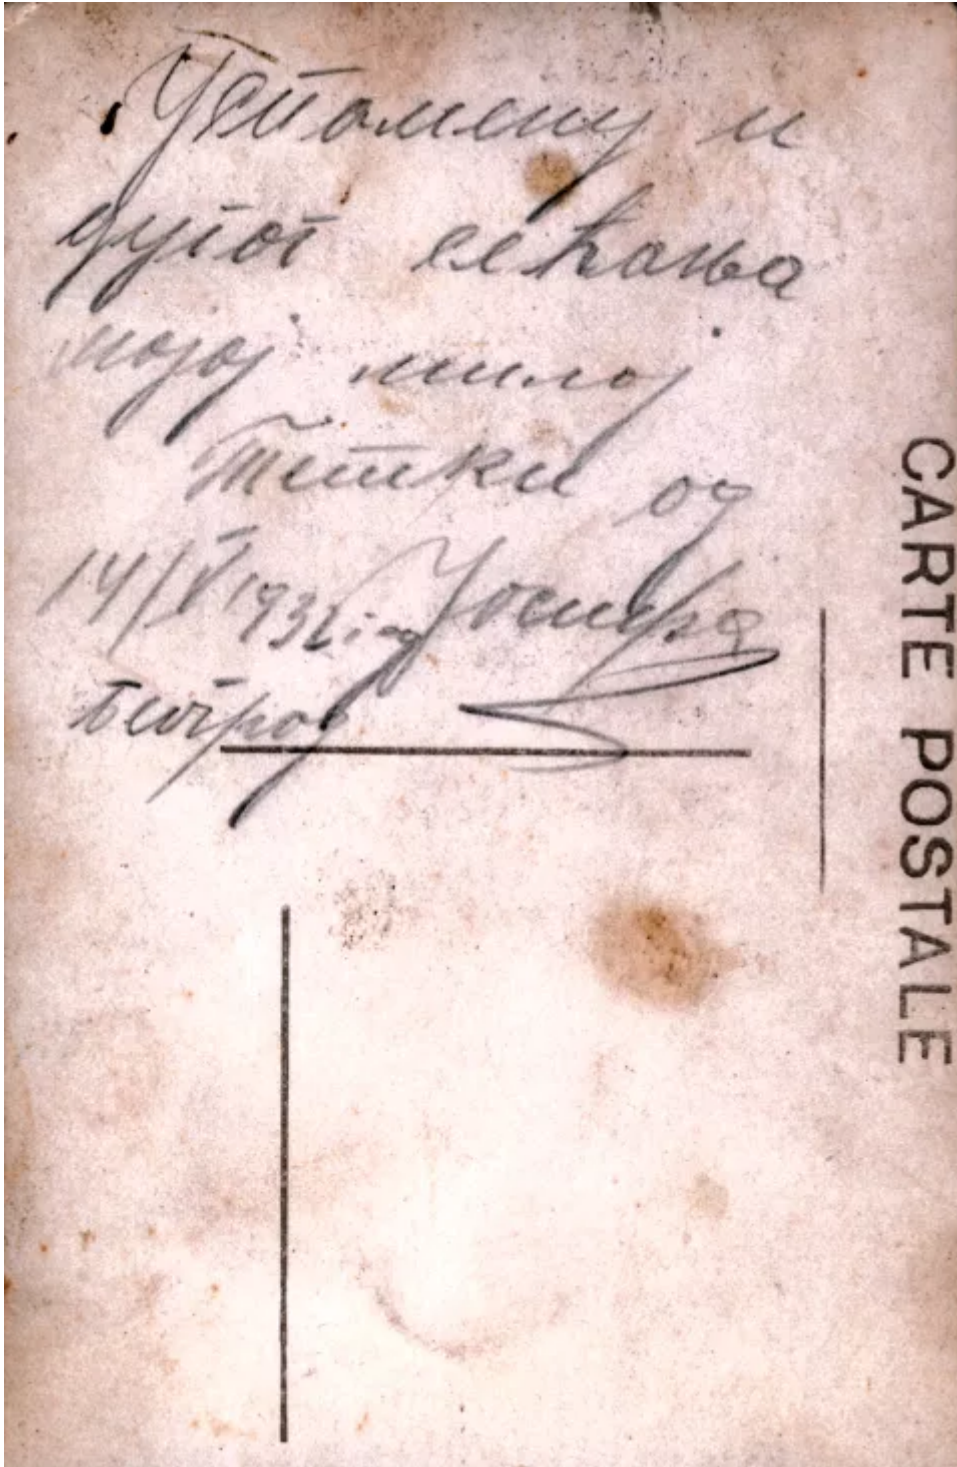 Успомену и
дугог сећања
мојој милој
Тешки од
14/V 1932 год Јосипа
Београд
CARTE POSTALE